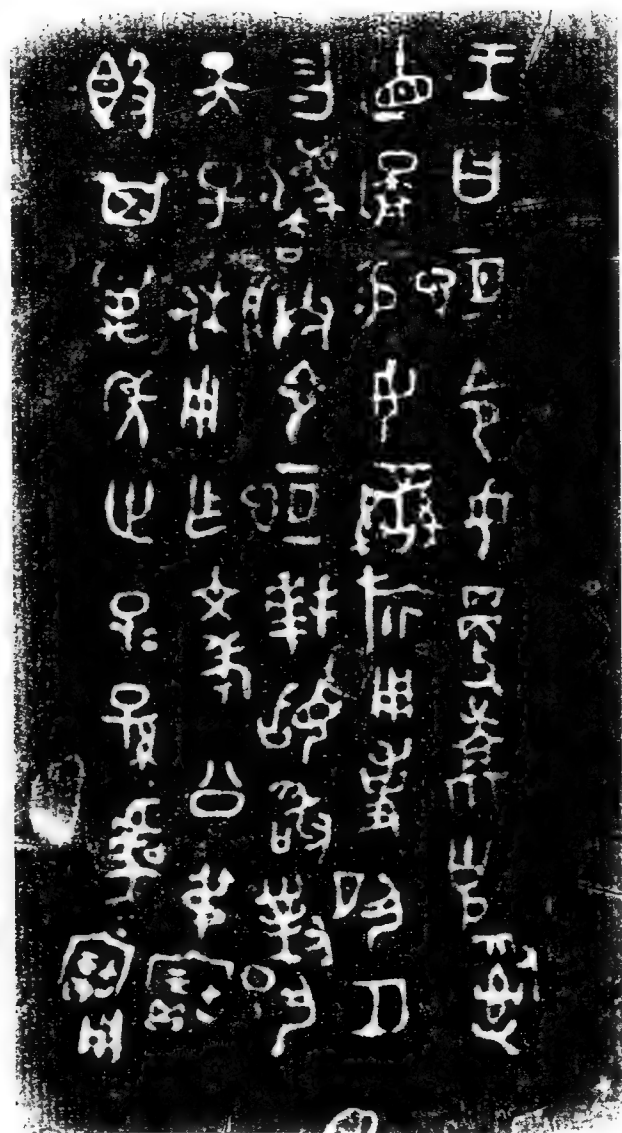 王曰恆令女更喬克司直
啚易女䜌旂用事夙夕
勿灋朕令恆拜𩒨敢對揚
天子休用乍文考公弔寶
𣪘其萬年世子子孫虞寶用